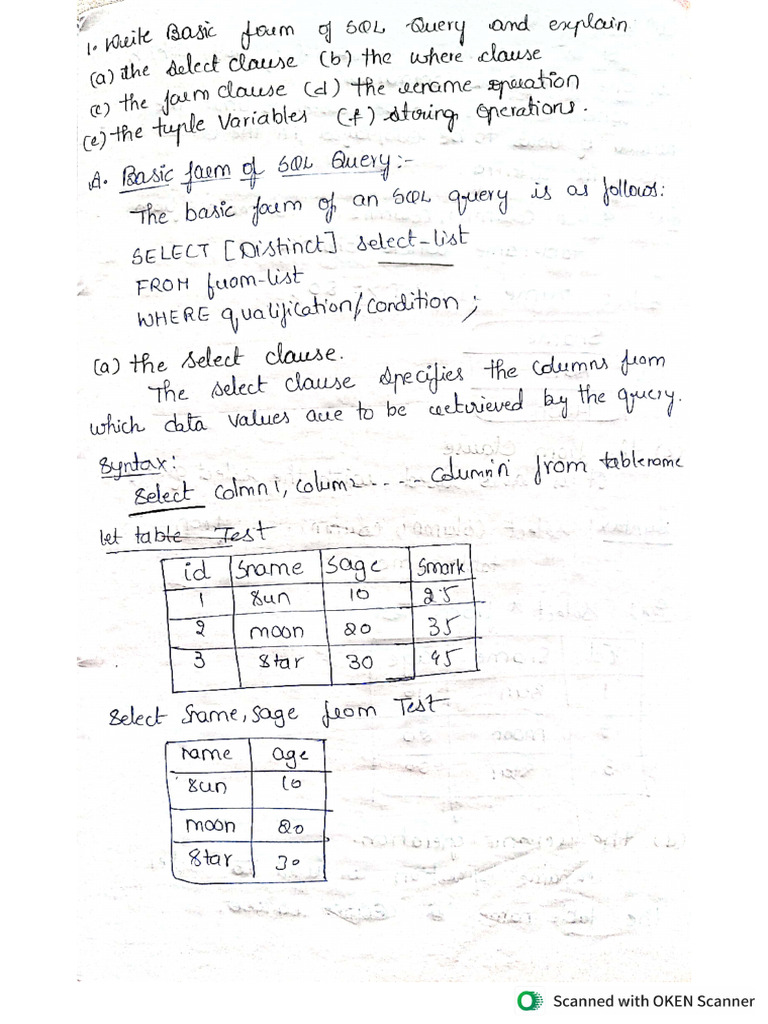 1. Write Basic form of SQL Query and explain
(a) the select clause (b) the where clause
(c) the form clause (d) the rename operation
(e) the tuple Variables (f) storing operations.
A. Basic form of SQL Query:-
The basic form of an SQL query is as follows:
SELECT [Distinct] select-list
FROM from-list
WHERE qualification/condition;
(a) the select clause.
The select clause specifies the columns from
which data values are to be retrieved by the query.
Syntax:
Select colmn1, colum2.....column'n' from tablename
let table Test
id Sname Sage Smark
1 Sun 10 25
2 moon 20 35
3 Star 30 45
Select Sname, Sage from Test
name age
Sun 10
moon 20
Star 30
Scanned with OKEN Scanner